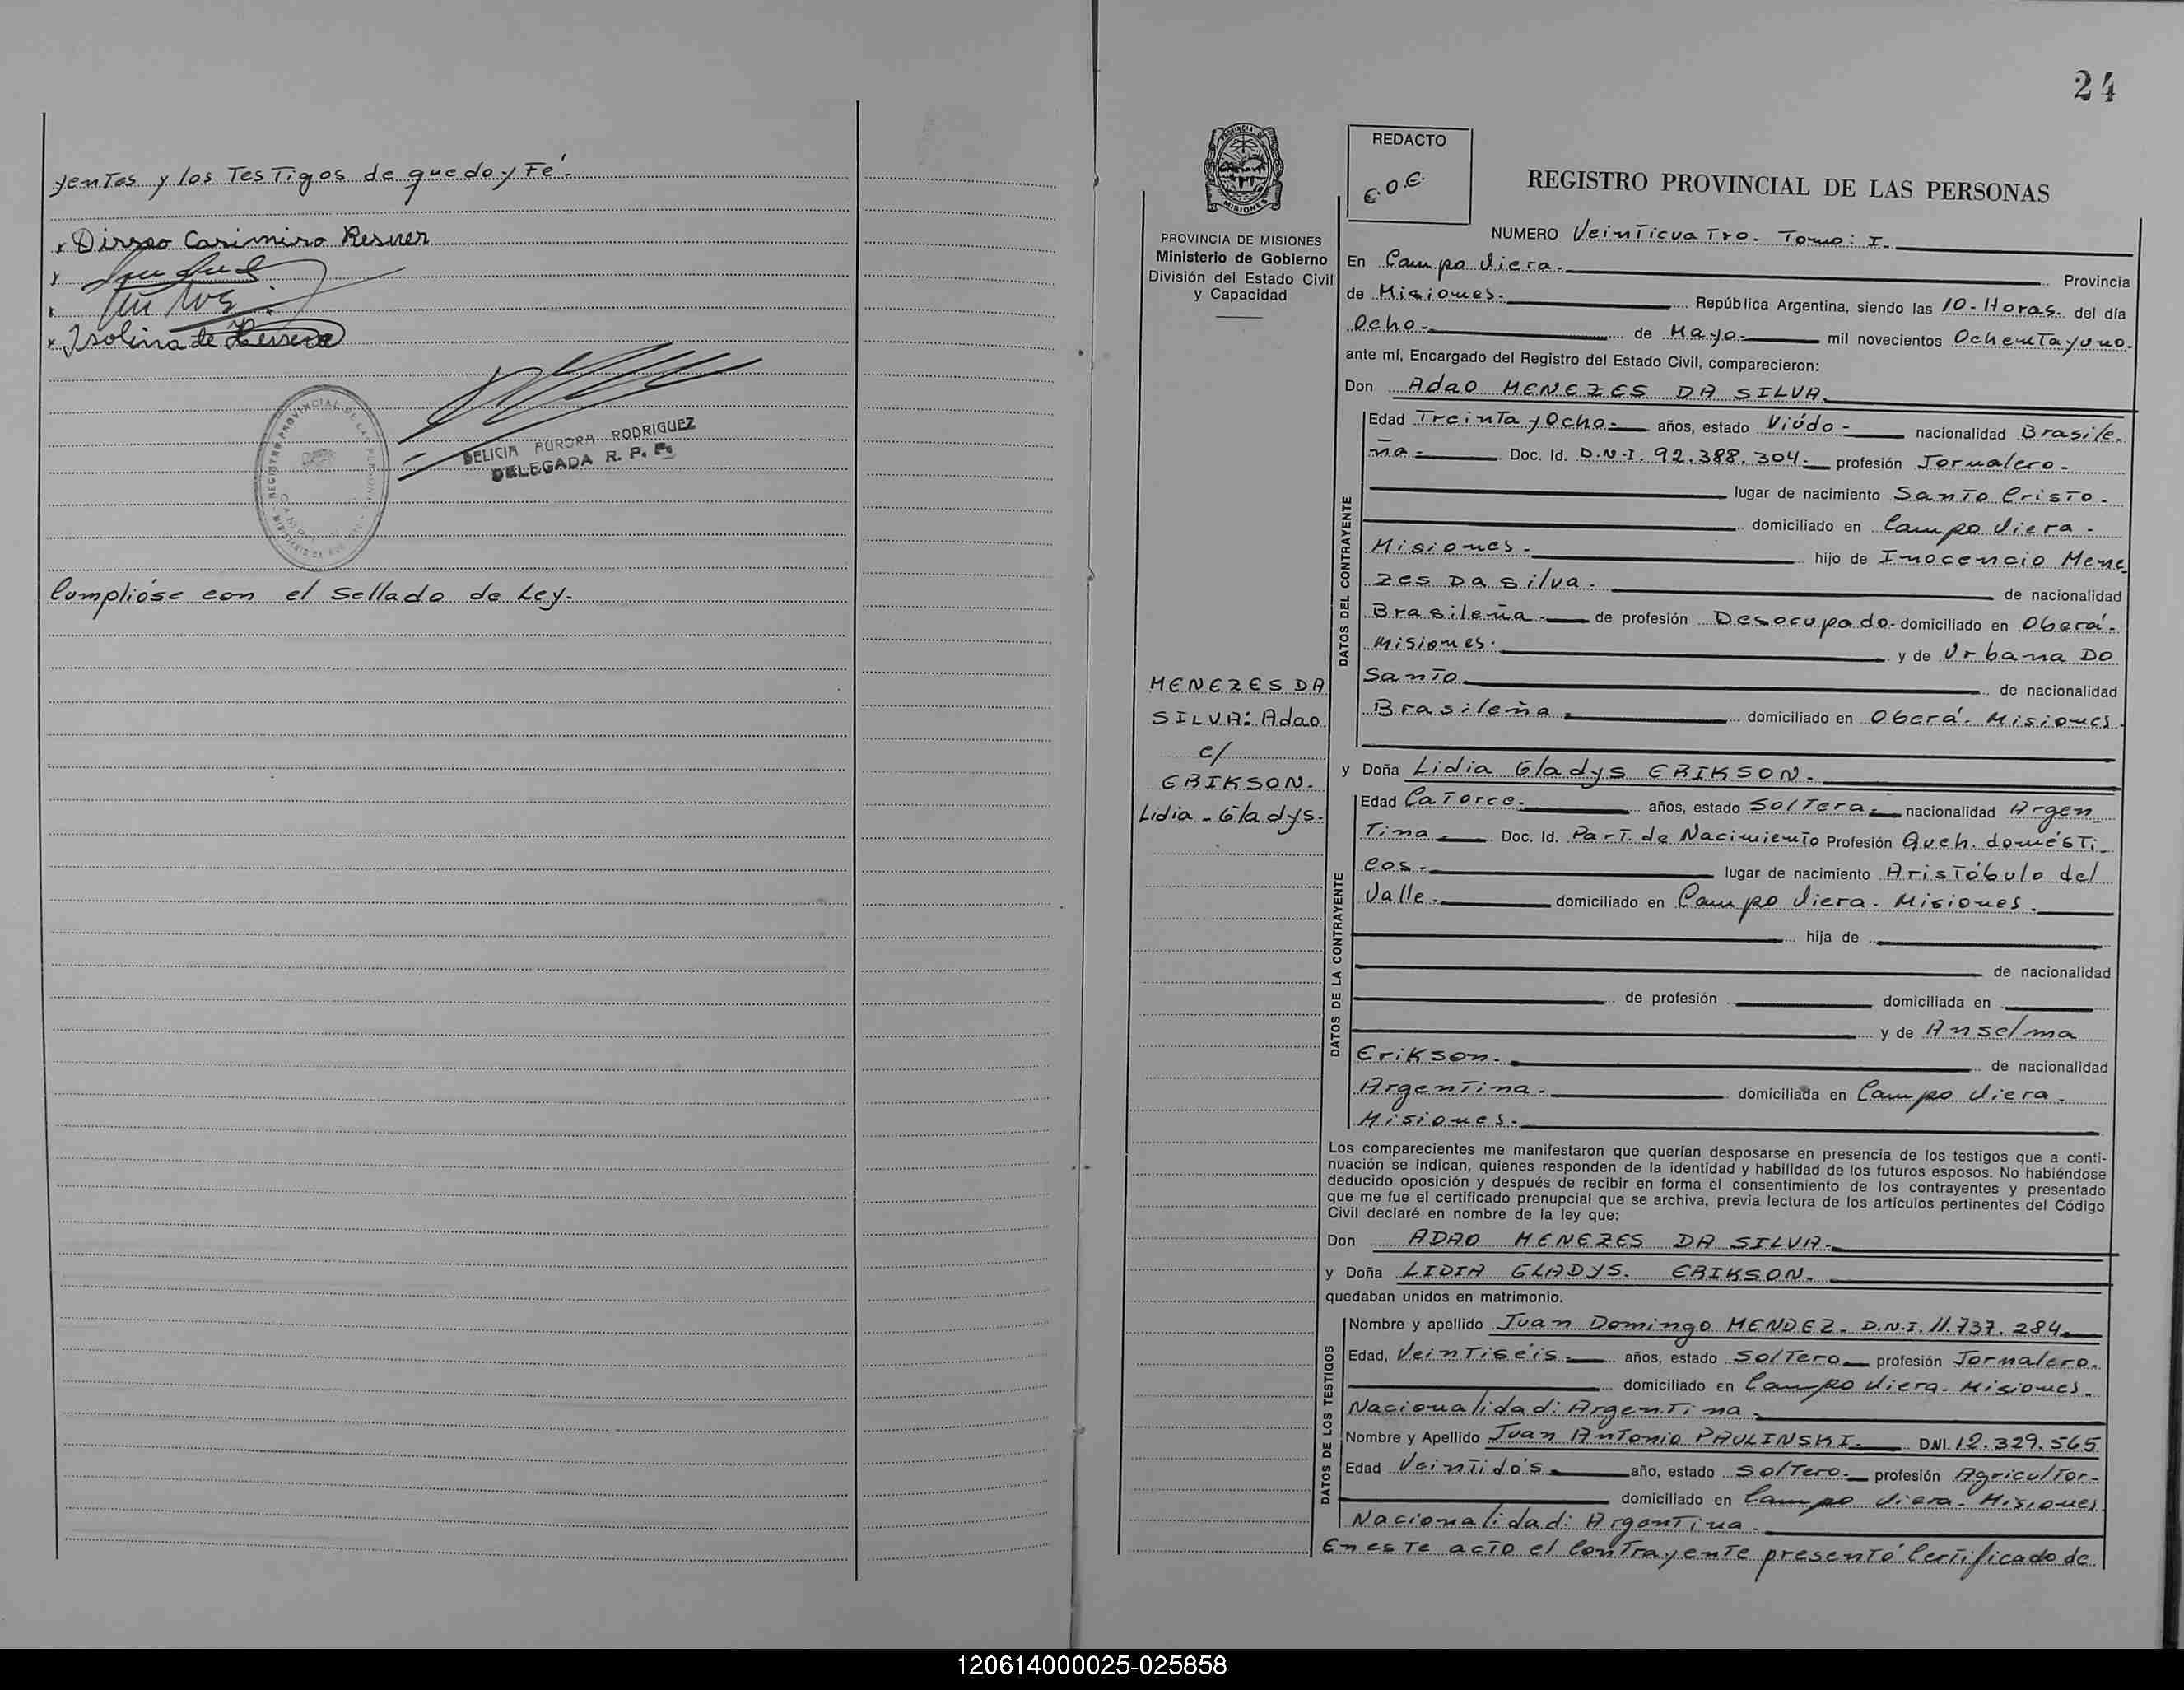 yentes y los Testigos de que doy Fé.
x Dirseo Casimiro Resner
y
x
x Isolina de Herrera
REGISTRO PROVINCIAL DE LAS
DELICIA AURORA RODRIGUEZ
DELEGADA R. P. P.
Cumplióse con el sellado de Ley.
24
PROVINCIA DE
MISIONES
REDACTO
E.O.E.
REGISTRO PROVINCIAL DE LAS PERSONAS
PROVINCIA DE MISIONES
Ministerio de Gobierno
División del Estado Civil
y Capacidad
MENEZES DA
SILVA: Adao
c/
ERIKSON.
Lidia - Gladys.
NUMERO Veinticuatro. Tomo: I.
En Campo Viera. Provincia
de Misiones. República Argentina, siendo las 10-Horas. del día
Ocho. de Mayo mil novecientos Ochenta y uno.
ante mí, Encargado del Registro del Estado Civil, comparecieron:
Don Adao MENEZES DA SILVA.
DATOS DEL CONTRAYENTE
Edad Treinta y Ocho. años, estado Viúdo - nacionalidad Brasile-
ña. Doc. Id. D.N.I. 92.388.304. profesión Jornalero.
lugar de nacimiento Santo Cristo.
domiciliado en Campo Viera -
Misiones. hijo de Inocencio Mene
zes Da Silva. de nacionalidad
Brasileña. de profesión Desocupado. domiciliado en Oberá.
Misiones. y de Urbana DO
Santo. de nacionalidad
Brasileña. domiciliado en Oberá. Misiones.
y Doña Lidia Gladys ERIKSON.
DATOS DE LA CONTRAYENTE
Edad Catorce. años, estado Soltera. nacionalidad Argen-
tina. Doc. Id. Part. de Nacimiento Profesión Queh. domésti-
cos. lugar de nacimiento Aristóbulo del
Valle. domiciliado en Campo Viera. Misiones.
hija de
de nacionalidad
de profesión domiciliada en
y de Anselma
Erikson. de nacionalidad
Argentina. domiciliada en Campo Viera.
Misiones.
Los comparecientes me manifestaron que querían desposarse en presencia de los testigos que a conti-
nuación se indican, quienes responden de la identidad y habilidad de los futuros esposos. No habiéndose
deducido oposición y después de recibir en forma el consentimiento de los contrayentes y presentado
que me fue el certificado prenupcial que se archiva, previa lectura de los artículos pertinentes del Código
Civil declaré en nombre de la ley que:
Don ADAO MENEZES DA SILVA.
y Doña LIDIA GLADYS. ERIKSON.
quedaban unidos en matrimonio.
DATOS DE LOS TESTIGOS
Nombre y apellido Juan Domingo MENDEZ. D.N.I. 11.737.284
Edad, Veintiséis. años, estado Soltero. profesión Jornalero.
domiciliado en Campo Viera. Misiones.
Nacionalidad: Argentina.
Nombre y Apellido Juan Antonio PAULINSKI. DNI. 12.329.565
Edad Veintidós. año, estado Soltero. profesión Agricultor-
domiciliado en Campo Viera. Misiones.
Nacionalidad: Argentina.
En este acto el Contrayente presentó Certificado de
120614000025-025858